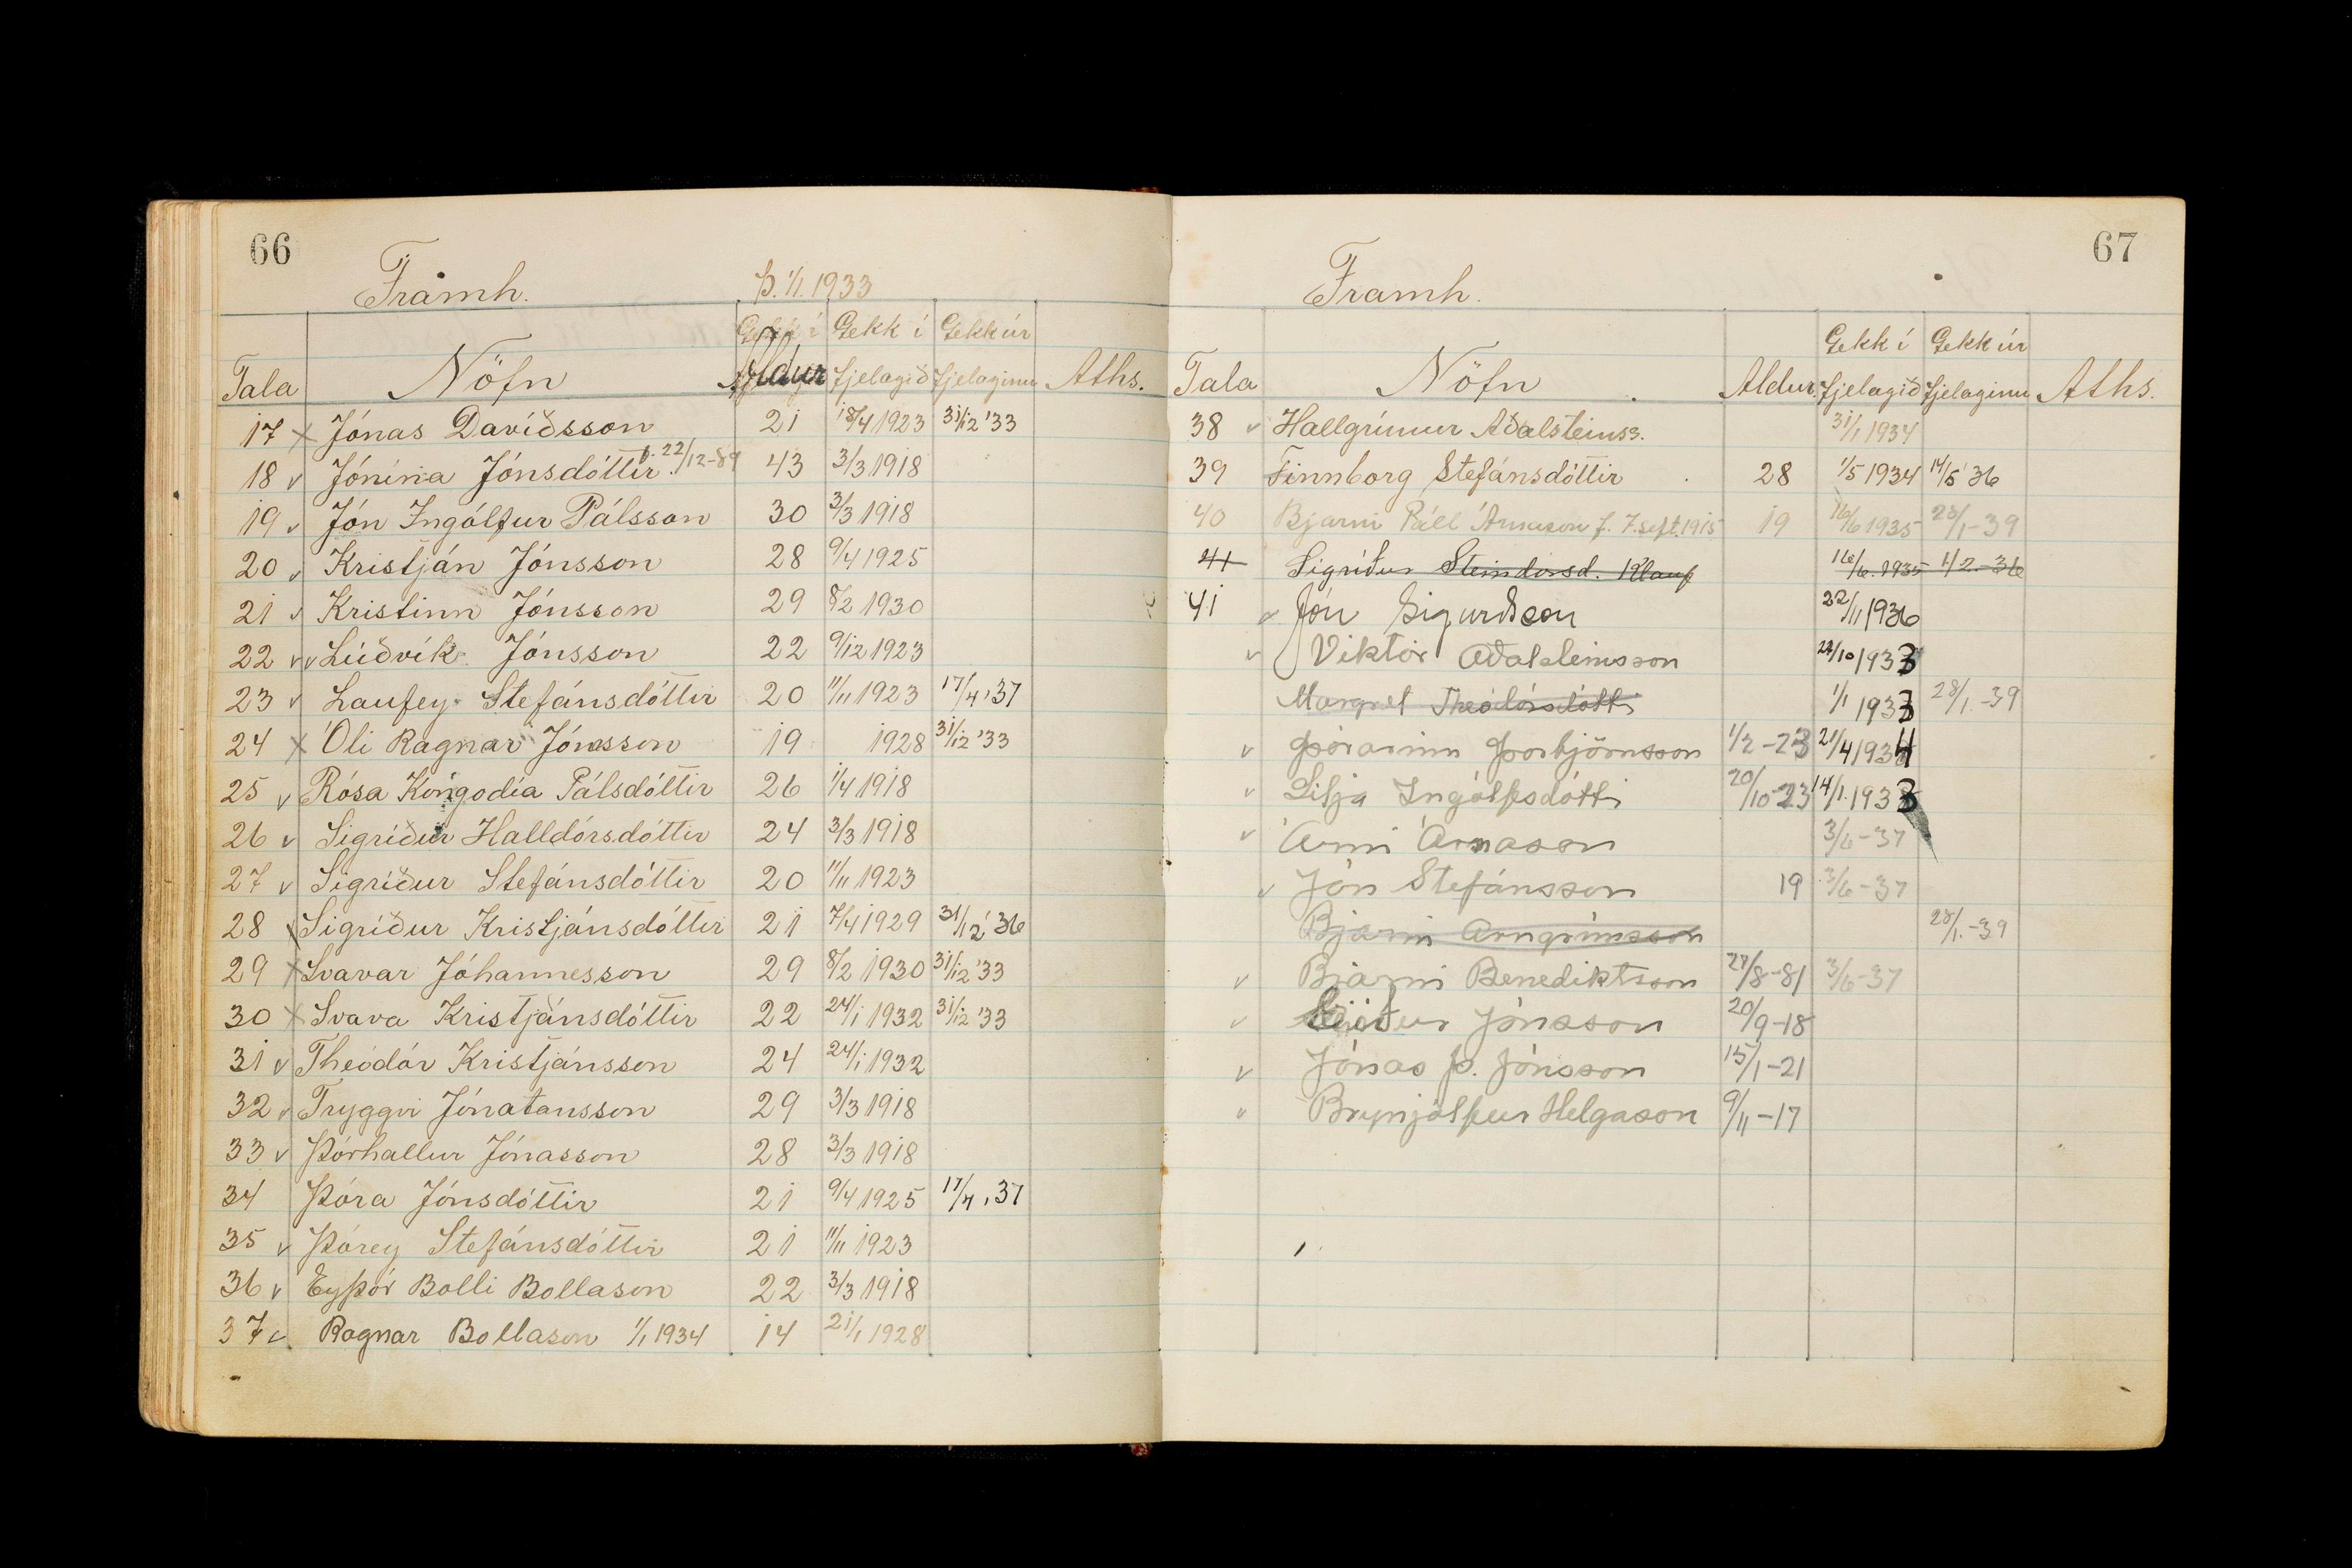 66
Framh.
Þ. 1/1. 1933
Tala Nöfn Aldur Gekk í fjelagið Gekk úr fjelaginu Aths.
17 x Jónas Davíðsson 21 18/4 1923 31/12 '33
18 v Jónína Jónsdóttir f. 22/12-89 43 3/3 1918
19 v Jón Ingólfur Pálsson 30 3/3 1918
20 v Kristján Jónsson 28 9/4 1925
21 v Kristinn Jónsson 29 8/2 1930
22 v v Lúðvík Jónsson 22 9/12 1923
23 v Laufey Stefánsdóttir 20 11/11 1923 17/4 '37
24 x Óli Ragnar Jónasson 19 1928 31/12 '33
25 v Rósa Pálsdóttir 26 1/4 1918
26 v Sigríður Halldórsdóttir 24 3/3 1918
27 v Sigríður Stefánsdóttir 20 11/11 1923
28 x Sigríður Kristjánsdóttir 21 7/4 1929 31/12 '36
29 x Svavar Jóhannesson 29 8/2 1930 31/12 '33
30 x Svava Kristjánsdóttir 22 24/1 1932 31/12 '33
31 v Theódór Kristjánsson 24 24/1 1932
32 v Tryggvi Jónatansson 29 3/3 1918
33 v Þórhallur Jónasson 28 3/3 1918
34 Þóra Jónsdóttir 21 9/4 1925 17/4 '37
35 v Þórey Stefánsdóttir 21 11/11 1923
36 v Eyþór Bolli Bollason 22 3/3 1918
37 v Ragnar Bollason 1/1 1934 14 21/1 1928
67
Framh.
Tala Nöfn Aldur. Gekk í fjelagið Gekk úr fjelaginu Aths.
38 v Hallgrímur Aðalsteinss. 31/1 1934
39 Finnborg Stefánsdóttir 28 1/5 1934 14/5 '36
40 Bjarni Páll Árnason f. 7. sept. 1915 19 16/6 1935 28/1-39
41 Sigríður Steindórsd. 16/6. 1935 1/2.-36
41 v Jón Sigurðsson 22/11 1936
v Viktor Aðalsteinsson 24/10 1933
Margret Theódórsdótti 1/1 1933 28/1.-39
v Þórarinn Þorbjörnsson 1/2-23 21/4 1934
v Lilja Ingólfsdótti 20/10-23 14/1. 1933
v Árni Árnason 3/6-37
v Jón Stefánsson 19 3/6-37
Bjarni Arngrímsson 28/1.-39
v Bjarni Benediktsson 27/8-81 3/6-37
v Jónsson 20/9-18
v Jónas Þ. Jónsson 15/1-21
v Brynjólfur Helgason 9/11-17